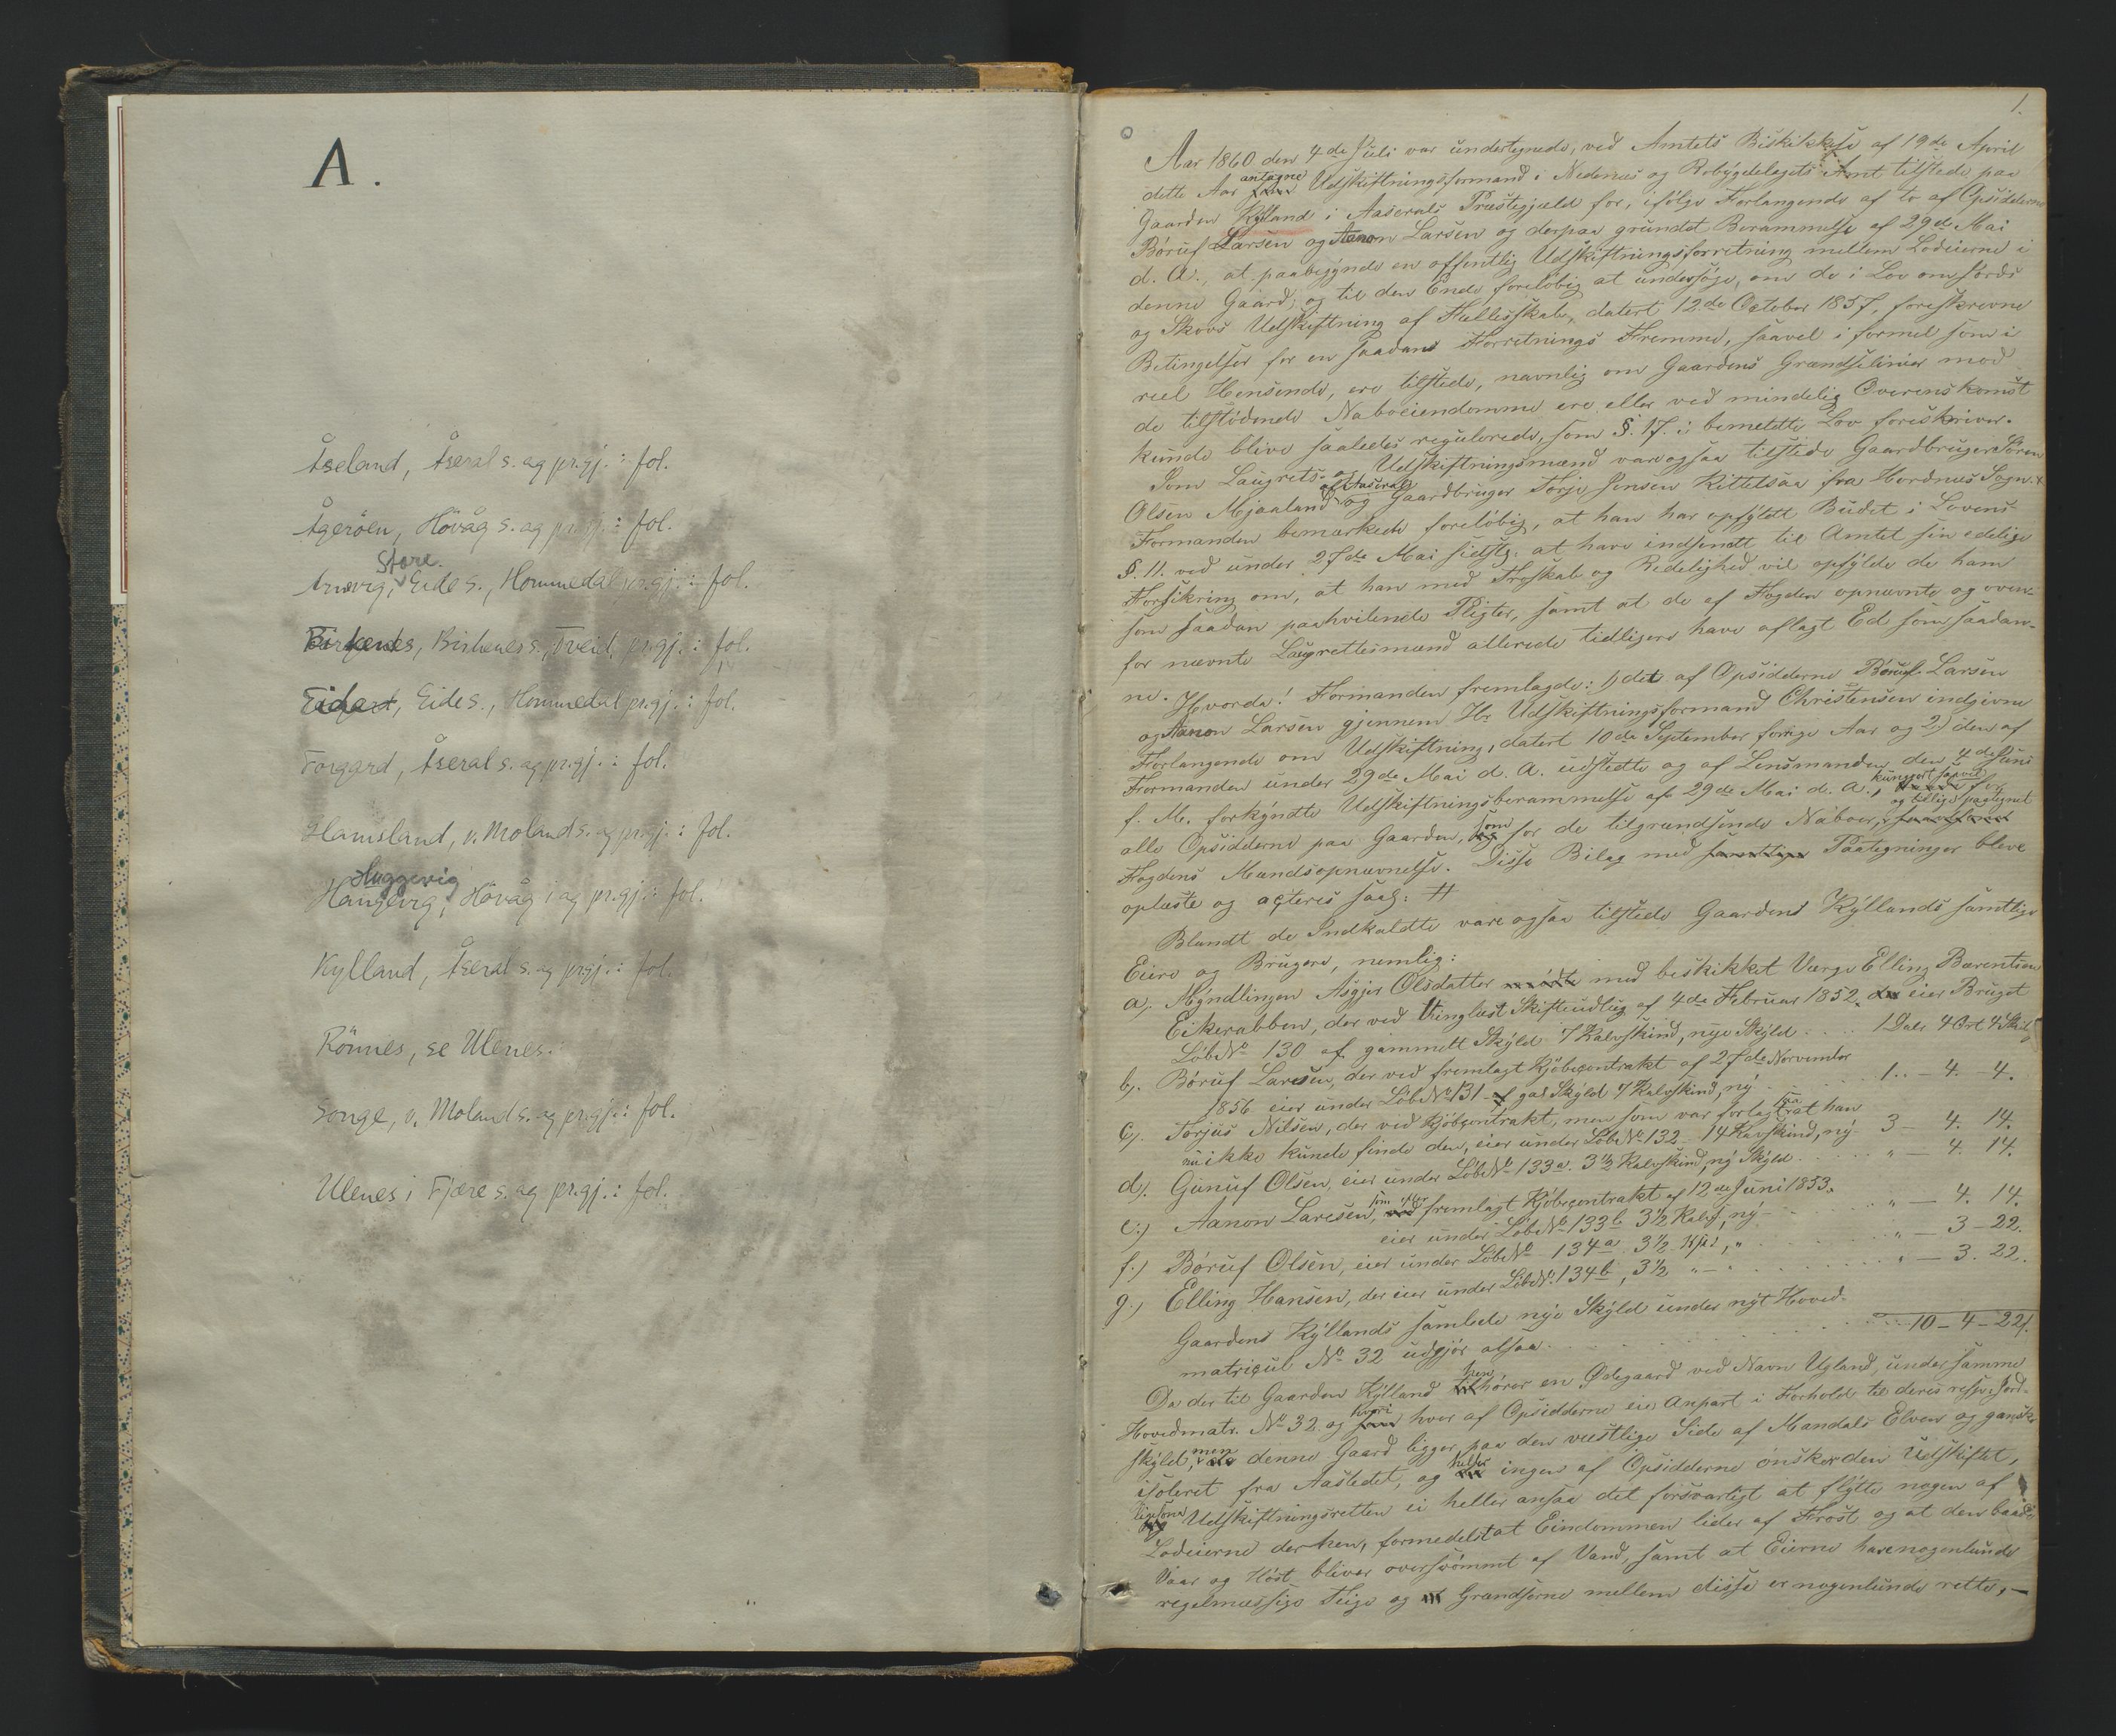 A.
Åseland, Åseral s. og pr.gj.: fol.
Ågeröen, Hövåg s. og pr.gj.: fol.
Store.
Eide s., Hommedal pr.gj.: fol.
Birkenes, Birkenes s., Tveid pr.gj.: fol.
Eide s., Hommedal pr.gj.: fol.
Torgard, Åseral s. og pr.gj.: fol.
Hamsland, v. Moland s. og pr.gj.: fol.
Huggevig
Hövåg s. og pr.gj.: fol.
Kylland, Åseral s. og pr.gj.: fol.
Rönnes, se Ulenes.
Songe, v. Moland s. og pr.gj.: fol.
Ulenes i Fjære s. og pr.gj.: fol.
1.
Aar 1860 den 4de Juli var undertegnede, ved Amtets Beskikkelse af 19de April
dette Aar antagne Udskiftningsformand i Nedenæs og Robygdelagets Amt tilstede paa
Gaarden Kylland i Aaserals Præstegjæld for, ifölge Forlangende af to af Opsidderne
Böruf Larsen og Aanon Larsen og derpaa grundet Berammelse af 29de Mai
d. A., at paabegynde en offentlig Udskiftningsforretning mellem Lodeierne i
denne Gaard, og til den Ende foreløbig at undersöge, om de i Lov om Jords
og Skovs Udskiftning af Fællesskab, datert 12de October 1857, foreskrevne
Betingelser for en saadans Forretnings Fremme, saavel i formel som i
reel Henseende, ere tilstede, navnlig om Gaardens Grændselinier mod
de tilstödende Naboeiendomme ere eller ved mindelig Overenskomst
kunde blive saaledes regulerede, som §. 17. i bemeldte Lov foreskriver.
Som Laugrets- og Udskiftningsmænd vare ogsaa tilstede Gaardbruger Sören
Olsen Mjaaland af Aaseral og Gaardbruger Terje Jensen Kittelsaa fra Hordnæs Sogn.
Formanden bemærkede foreløbig, at han har opfyldt Budet i Lovens
§. 11. ved under 27de Mai sidstl. at have indsendt til Amtet sin edelige
Forsikring om, at han med Troskab og Redelighed vil opfylde de ham
som saadan paahvilende Pligter, samt at de af Fogden opnævnte og oven-
for nævnte Laugrettesmænd allerede tidligere have aflagt Ed som saadan-
ne. Hvorda! Formanden fremlagde: 1) det af Opsidderne Böruf Larsen
og Aanon Larsen gjennem Hr Udskiftningsformand Christensen indgivne
Forlangende om Udskiftning, datert 10de September forrige Aar og 2) den af
Formanden under 29de Mai d. A. udstedte og af Lensmanden den 4de Juni
f. M. forkyndte Udskiftningsberammelse af 29de Mai d. A., kungjort saavel for
alle Opsidderne paa Gaarden, som for de tilgrændsende Naboer, og tillige paategnet
Fogdens Mandsopnævnelse. Disse Bilag med Paategninger bleve
oplæste og acteres saal: #
Blandt de Indkaldte vare ogsaa tilstede Gaardens Kyllands samtlige
Eiere og Brugere, nemlig:
a). Myndlingen Asgjer Olsdatter med beskikket Værge Elling Bærentsen
Eikerabben, der ved thinglæst Skifteudlæg af 4de Februar 1852, eier Bruget
Löb.No 130 af gammelt Skyld 7 Kalvskind, nye Skyld . . . 1 Daler 4 Ort 4 Skil
b). Böruf Larsen, der ved fremlagt Kjöbecontrakt af 27de November
1856 eier under Löb.No 131 gal Skyld 7 Kalvskind, ny . . . 1. - 4. - 4.
c). Torjus Nilsen, der ved Kjöbcontrakt, men som var forlagt saa at han
nu ikke kunde finde den, eier under Löb.No 132 - 14 Kavskind, ny - 3 - 4. 14.
d). Gunuf Olsen, eier under Löb.No 133a. 3½ Kalvskind, ny Skyld . . . " - 4. 14.
e.) Aanon Larsen, som efter fremlagt Kjöbecontrakt af 12de Juni 1853,
eier under Löb.No 133b 3½ Kalvs, ny . . . " - 4. 14.
f.) Böruf Olsen, eier under Löb.No 134a 3½ Kski, " . . . " - 3 - 22.
g.) Elling Hansen, der eier under Löb.No. 134b, 3½ " - " . . . " - 3. 22.
Gaardens Kyllands samlede nye Skyld under nyt Hoved-
matricul No 32 udgjör altsaa . . . 10 - 4 - 22.
Da der til Gaarden Kylland henhörer en Ødegaard ved Navn Ugland, under samme
Hovedmatr. No 32 og hvori hver af Opsidderne eie Anpart i Forhold til deres resp. Jord-
skyld, men denne Gaard ligger paa den vestlige Side af Mandals Elven og ganske
isoleret fra Aastedet, og heller ingen af Opsidderne önsker den Udskiftet,
ligesom Udskiftningsretten ei heller ansaa det forsvarligt at flytte nogen af
Lodeierne derhen, formedelst at Eindommen lider af Frost og at den baade
Vaar og Höst bliver oversvömmt af Vand, samt at Eierne have nogenlunde
regelmæssige Teige og Grændserne mellem disse er nogenlunde rette, -